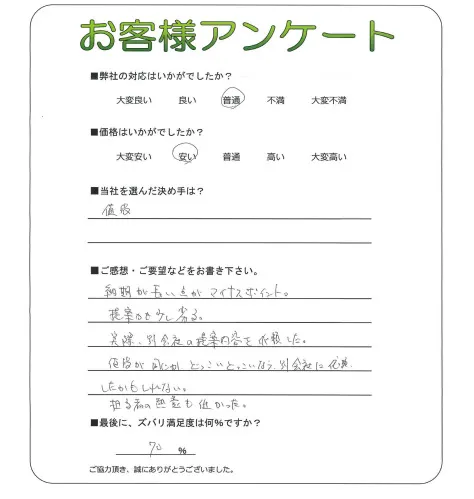 お客様アンケート
■弊社の対応はいかがでしたか？
大変良い 良い 普通 不満 大変不満
■価格はいかがでしたか？
大変安い 安い 普通 高い 大変高い
■当社を選んだ決め手は？
値段
■ご感想・ご要望などをお書き下さい。
納期が長い点がマイナスポイント。
提案力も少し劣る。
実際、別会社の提案内容を依頼した。
値段が同じか とっこいとっこいなら、別会社に依頼
したかもしれない。
担当者の熱意も低かった。
■最後に、ズバリ満足度は何％ですか？
70 %
ご協力頂き、誠にありがとうございました。